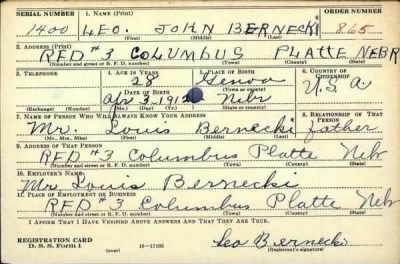 SERIAL NUMBER 1. NAME (Print) ORDER NUMBER
1400 LEO. JOHN BERNECKI 865
(First) (Middle) (Last)
2. ADDRESS (Print)
RFD #3 COLUMBUS PLATTE NEBR
(Number and street or R. F. D. number) (Town) (County) (State)
3. TELEPHONE 4. AGE IN YEARS 5. PLACE OF BIRTH 6. COUNTRY OF CITIZENSHIP
28 Genoa
(Town or county)
DATE OF BIRTH
Apr 3-1912 Nebr U.S.A
(Exchange) (Number) (Mo.) (Day) (Yr.) (State or country)
7. NAME OF PERSON WHO WILL ALWAYS KNOW YOUR ADDRESS 8. RELATIONSHIP OF THAT PERSON
Mr. Louis Bernecki father
(Mr., Mrs., Miss) (First) (Middle) (Last)
9. ADDRESS OF THAT PERSON
RFD #3 Columbus Platte Neb
(Number and street or R. F. D. number) (Town) (County) (State)
10. EMPLOYER'S NAME
Mr. Louis Bernecki
11. PLACE OF EMPLOYMENT OR BUSINESS
RFD #3 Columbus Platte Neb
(Number and street or R. F. D. number) (Town) (County) (State)
I AFFIRM THAT I HAVE VERIFIED ABOVE ANSWERS AND THAT THEY ARE TRUE.
REGISTRATION CARD
D. S. S. Form 1 16-17105 Leo Bernecki